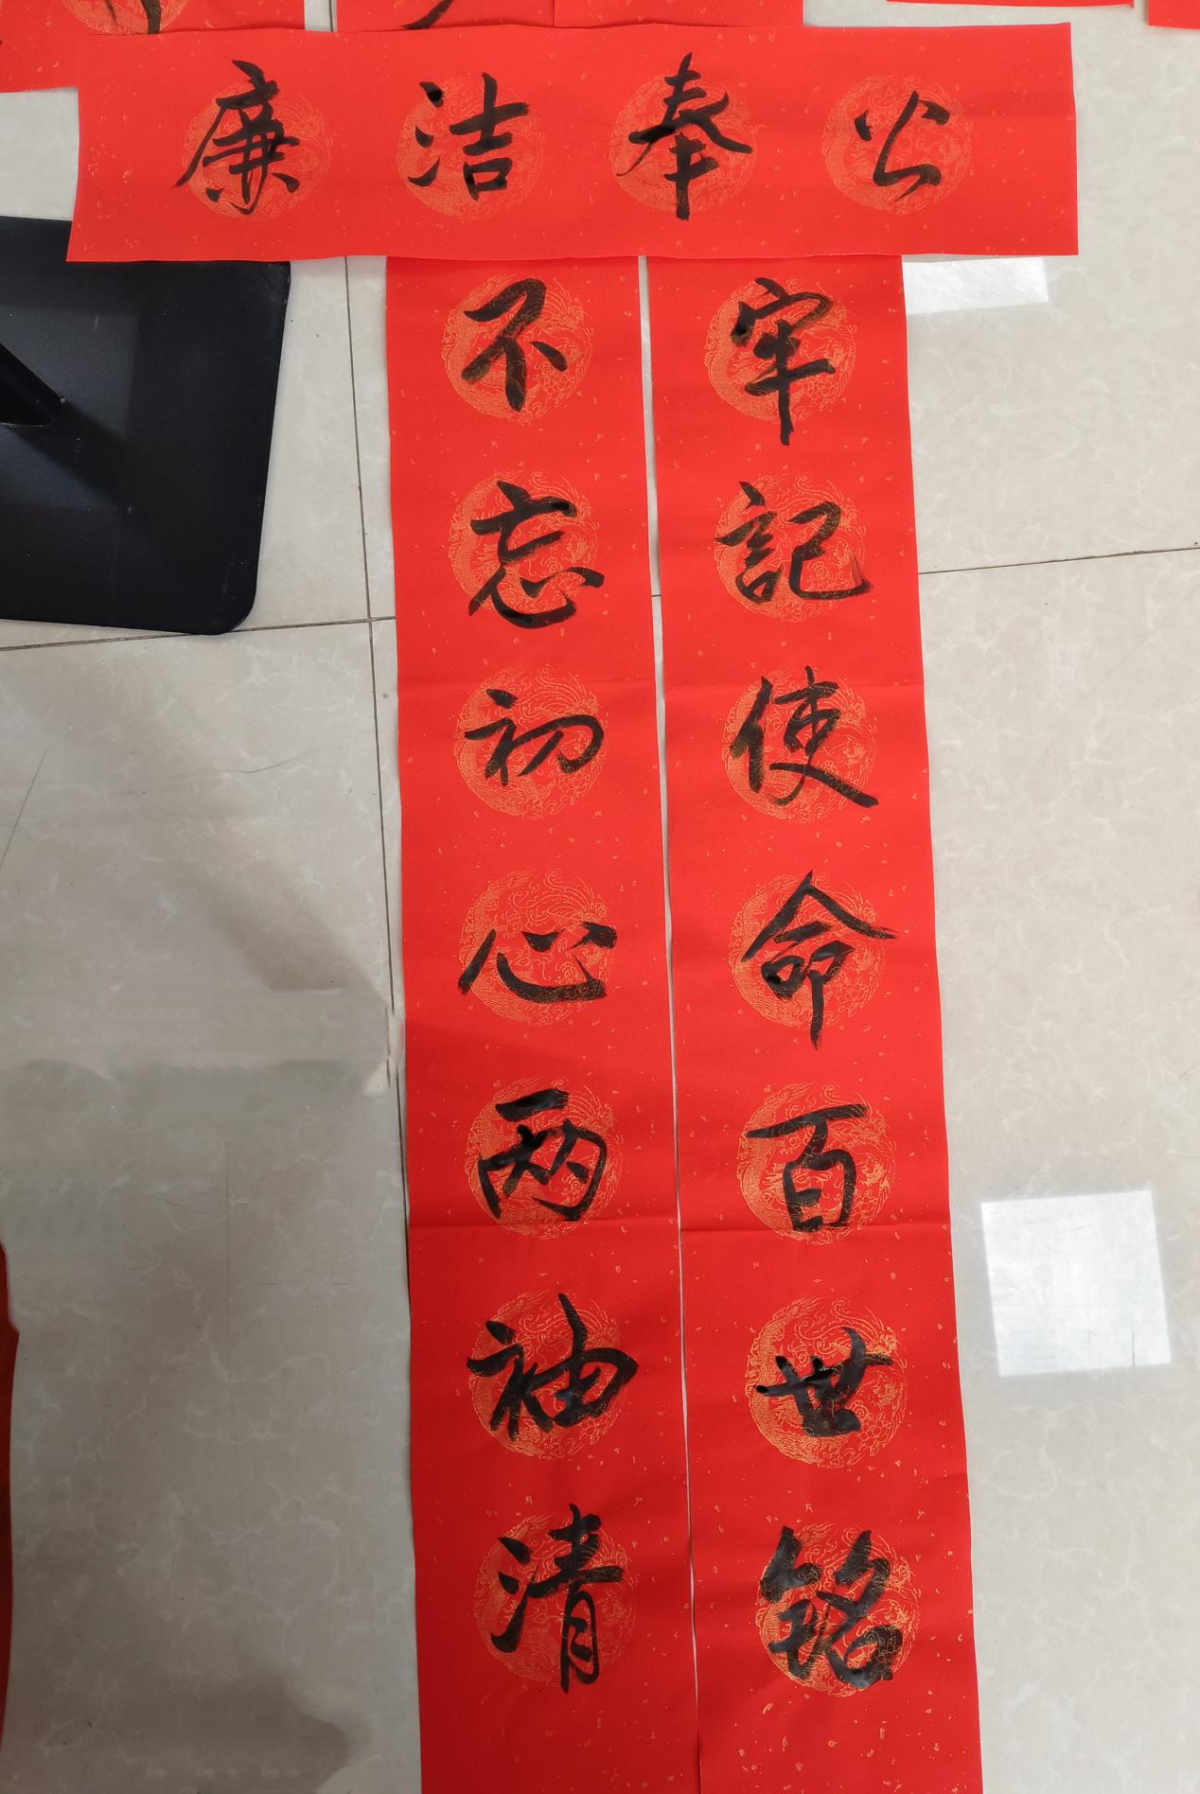 廉洁奉公
牢記使命百世铭
不忘初心两袖清